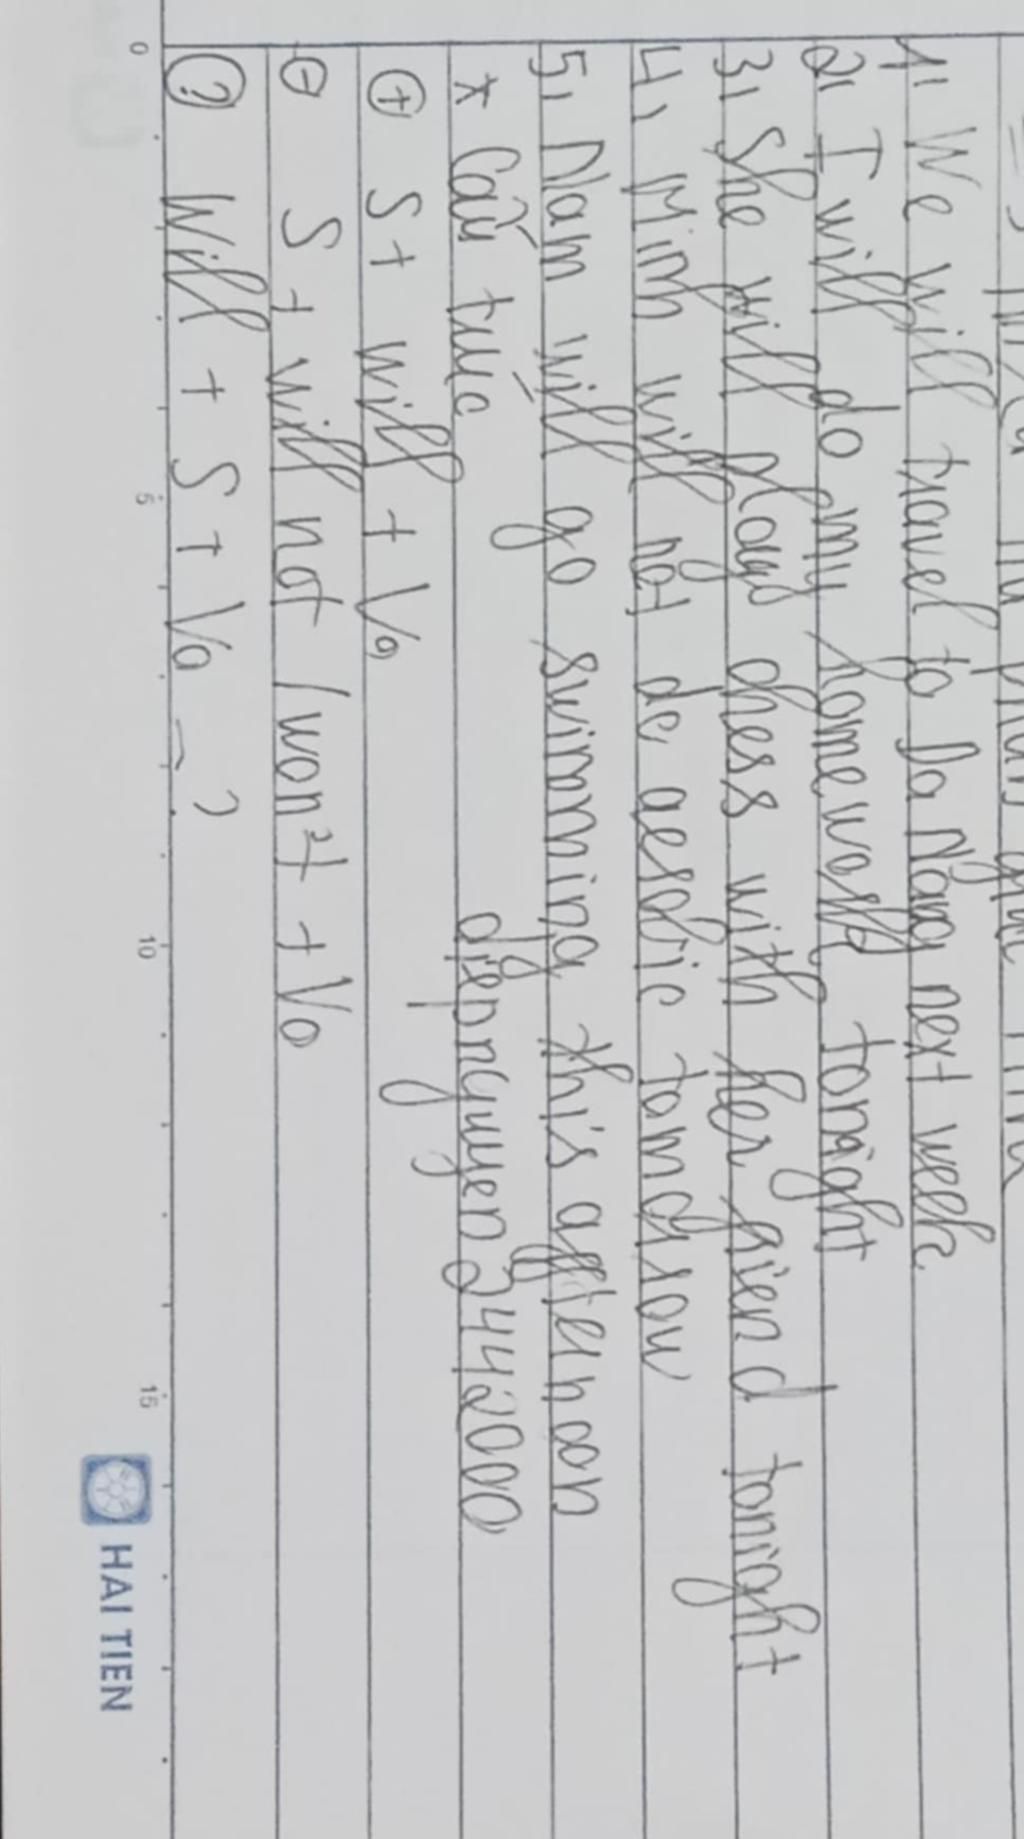 1, We will travel to Da Nang next week
2, I will do my homework tonight
3, She will play chess with her friend tonight
4, Minh will not do aeobic tomorrow
5, Nam will go swimming this afternoon
* Cấu trúc diepnguyen2442000
(+) S + will + Vo
(-) S + will not / won't + Vo
(?) Will + S + Vo ?
0 5 10 15
HAI TIEN